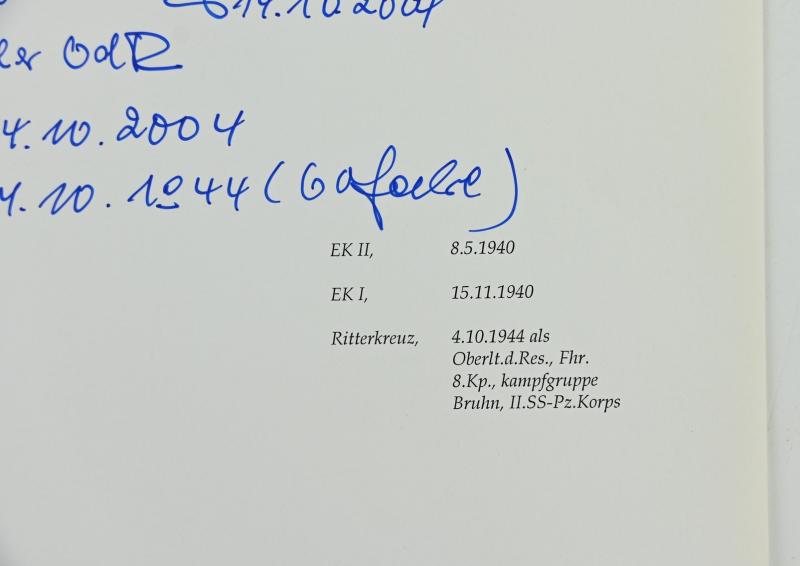 14.10.2004
OdR
4.10.2004
4.10.1944 (
EK II, 8.5.1940
EK I, 15.11.1940
Ritterkreuz, 4.10.1944 als
Oberlt.d.Res., Fhr.
8.Kp., kampfgruppe
Bruhn, II.SS-Pz.Korps